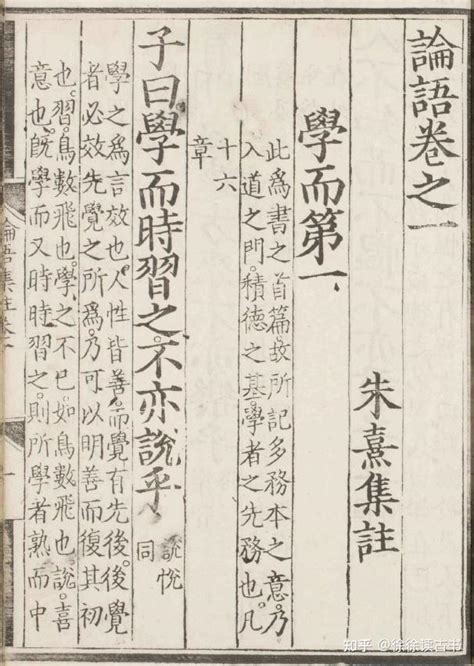 論語卷之一
朱熹集註
學而第一
此爲書之首篇。故所記多務本之意。乃
入道之門。積德之基。學者之先務也。凡
十六
章
子曰學而時習之。不亦說乎
說悅
同
學之爲言效也。人性皆善。而覺有先後。後覺
者必效先覺之所爲。乃可以明善而復其初
也。習。鳥數飛也。學之不已。如鳥數飛也。說。喜
意也。旣學而又時時習之。則所學者熟而中
論語集註
知乎 @徐徐读古书